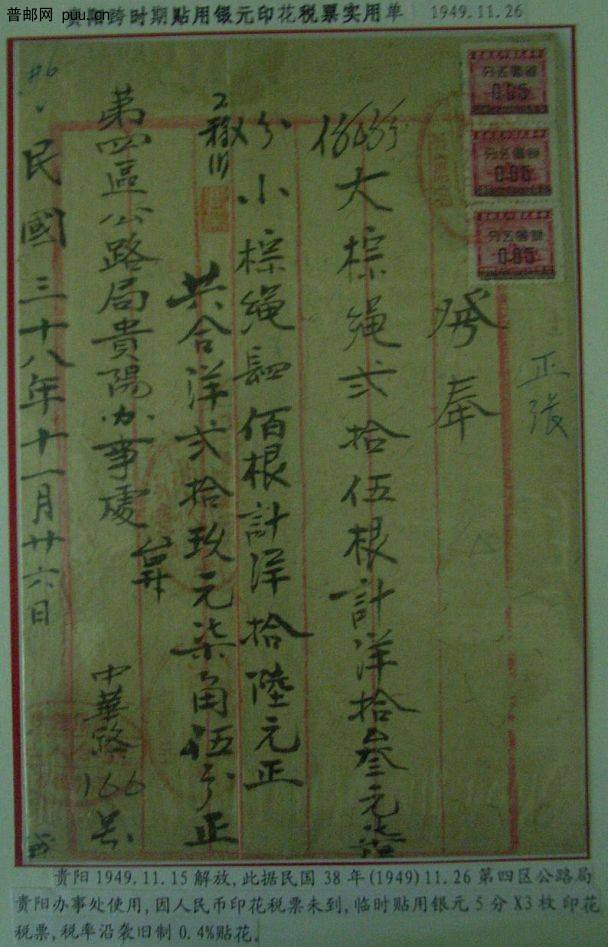 普邮网 puu.cn
贵阳跨时期贴用银元印花税票实用单 1949.11.26
0.05
0.05
0.05
正張
發奉
大棕绳弍拾伍根計洋拾叁元柒
小棕绳肆佰根計洋拾陸元正
共合洋弍拾玖元柒角伍分正
第四區公路局貴陽办事處 台升
中華路166号
民國三十八年十一月廿六日
贵阳1949.11.15解放,此据民国38年(1949)11.26第四区公路局
贵阳办事处使用,因人民币印花税票未到,临时贴用银元5分X3枚印花
税票,税率沿袭旧制0.4%贴花。